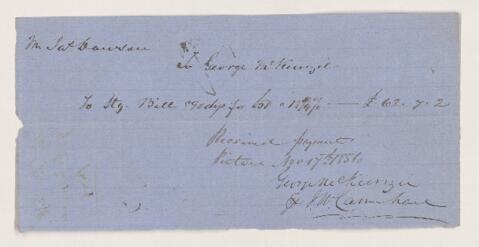 Mr Jas Dawson
To George McKenzie
To Stg. Bill Exchge for £50 @ — £ 62.7.2
Received payment
Pictou Nov 17th 1851
George McKenzie
J. W. Carmichael